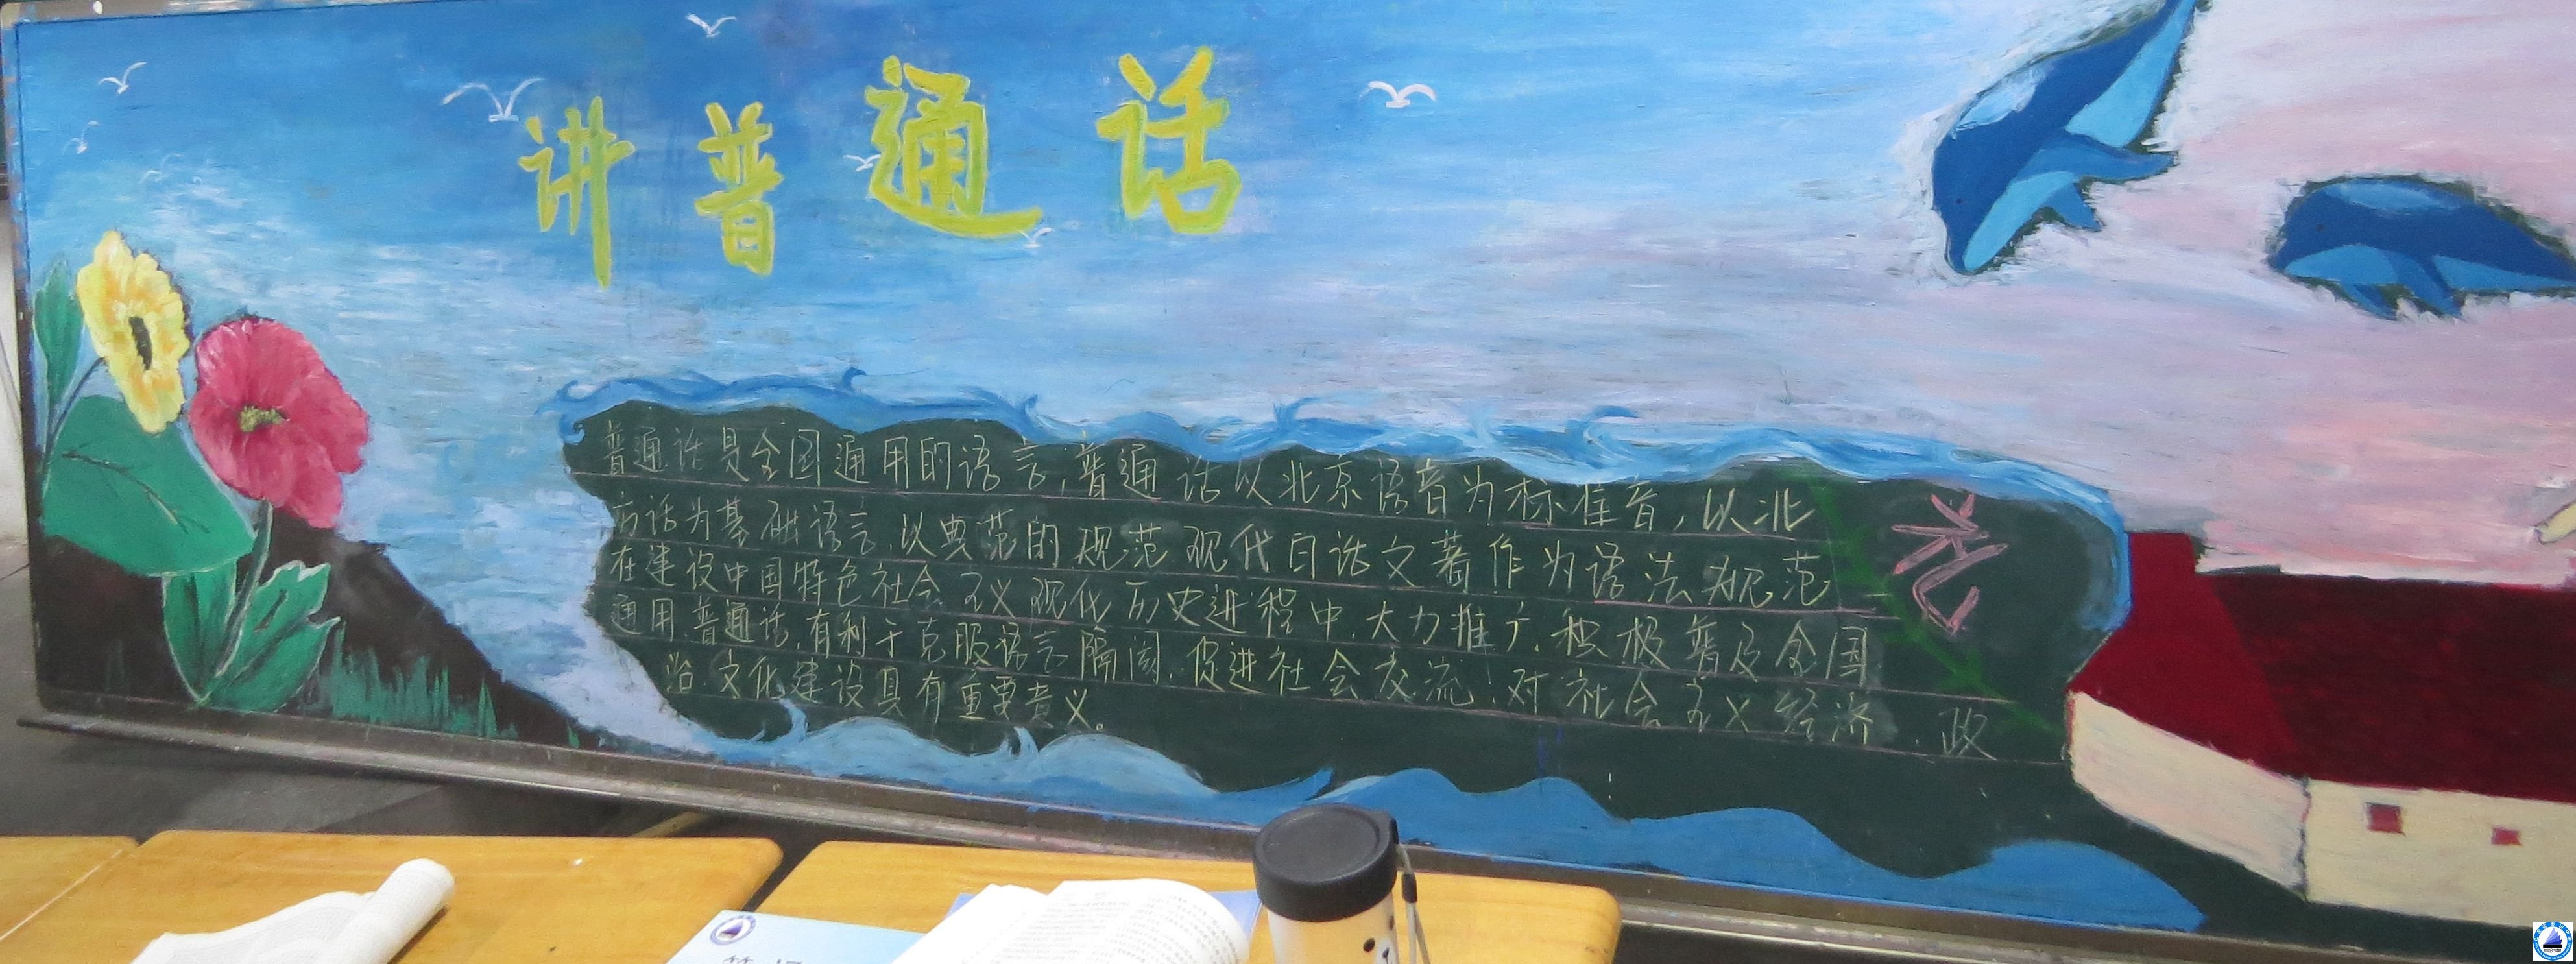 讲普通话
普通话是全国通用的语言,普通话以北京语音为标准音,以北
方话为基础语言,以典范的规范现代白话文著作为语法规范
在建设中国特色社会主义现代历史进程中,大力推广,积极普及全国
通用,普通话,有利于克服语言隔阂,促进社会交流,对社会主义经济,政
治文化建设具有重要意义。
礼